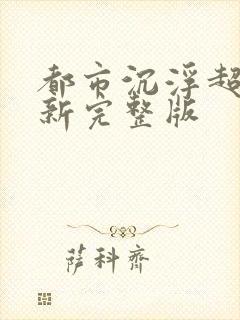 都市沉浮超
新完整版
萨科齐